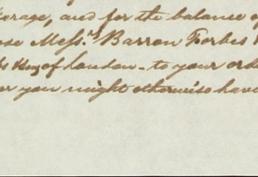 and for the balance of
Mess.rs Barron Forbes
of London - to your
you might otherwise have